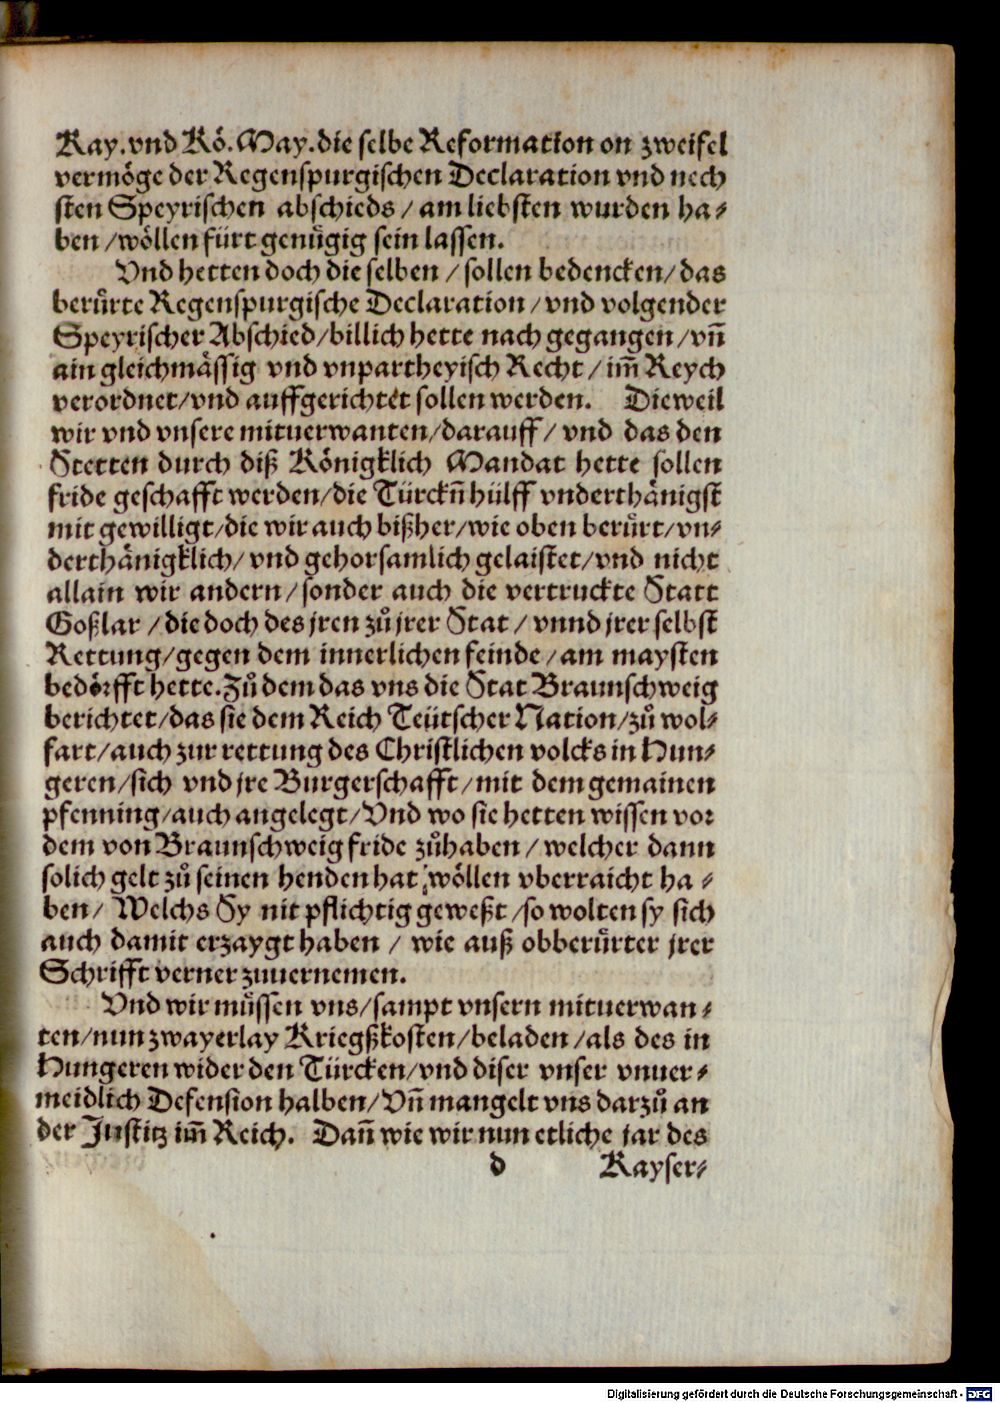 Kay. vnd Kö. May. die selbe Reformation on zweifel
vermöge der Regenspurgischen Declaration vnd nech
sten Speyrischen abschieds / am liebsten wurden ha⸗
ben / wöllen fürt genügig sein lassen.
Vnd hetten doch die selben / sollen bedencken / das
berůrte Regenspurgische Declaration / vnd volgender
Speyrischer Abschied / billich hette nach gegangen / vn̄
ain gleichmässig vnd vnpartheyisch Recht / im̄ Reych
verordnet / vnd auffgerichtet sollen werden. Dieweil
wir vnd vnsere mituerwanten / darauff / vnd das den
Stetten durch diß Königklich Mandat hette sollen
fride geschafft werden / die Türckn̄ hülff vnderthänigst
mit gewilligt / die wir auch bißher / wie oben berůrt / vn⸗
derthänigklich / vnd gehorsamlich gelaistet / vnd nicht
allain wir andern / sonder auch die vertruckte Statt
Goßlar / die doch des jren zů jrer Stat / vnnd jrer selbst
Rettung / gegen dem innerlichen feinde / am maysten
bedörfft hette. Zů dem das vns die Stat Braunschweig
berichtet / das sie dem Reich Teütscher Nation / zů wol⸗
fart / auch zur rettung des Christlichen volcks in Hun⸗
geren / sich vnd jre Burgerschafft / mit dem gemainen
pfenning / auch angelegt / Vnd wo sie hetten wissen vor
dem von Braunschweig fride zůhaben / welcher dann
solich gelt zů seinen henden hat / wöllen vberraicht ha⸗
ben / Welchs Sy nit pflichtig geweßt / so wolten sy sich
auch damit erzaygt haben / wie auß obberůrter jrer
Schrifft verner zuuernemen.
Vnd wir müssen vns / sampt vnsern mituerwan⸗
ten / nun zwayerlay Kriegßkosten / beladen / als des in
Hungeren wider den Türcken / vnd diser vnser vnuer⸗
meidlich Defension halben / Vn̄ mangelt vns darzů an
der Justitz im̄ Reich. Dan̄ wie wir nun etliche jar des
d Kayser⸗
Digitalisierung gefördert durch die Deutsche Forschungsgemeinschaft - DFG